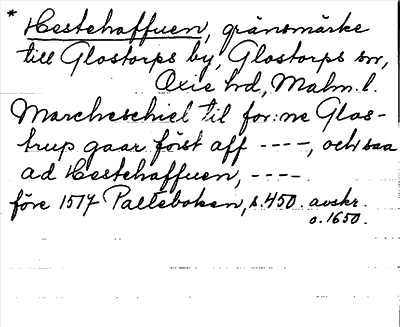 * Hestehaffuen, gränsmärke
till Glostorps by, Glostorps sn,
Oxie hd, Malm. l.
Marcheschiel til for:ne Glos-
trup gaar först aff ----, och saa
ad Hestehaffuen, ----
före 1517 Palteboken, s. 450. avskr.
o. 1650.